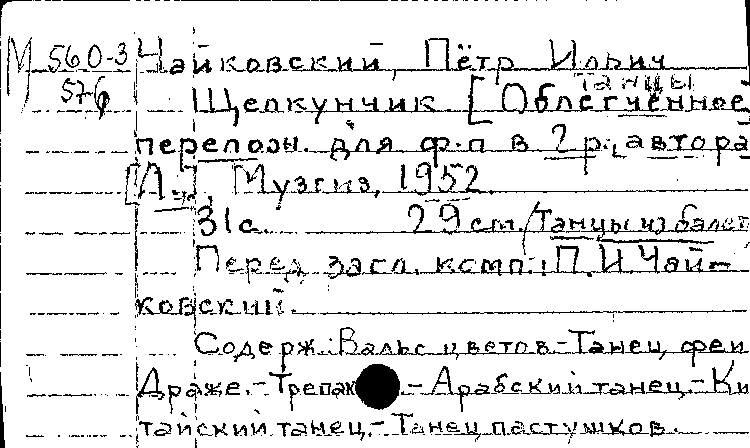 М 560-3 Чайковский, Пётр Ильич
576 танцы
Щелкунчик [Облегчённое
перелож. для ф.п в 2 р., автора
[Л.], Музгиз, 1952.
31с. 29 cm. (Танцы из балет
Перед загл. комп.: П.И. Чай-
ковский.
Содерж.: Вальс цветов.-Танец феи
Драже.-Трепак.-Арабский танец.-Ки
тайский танец.-Танец пастушков.